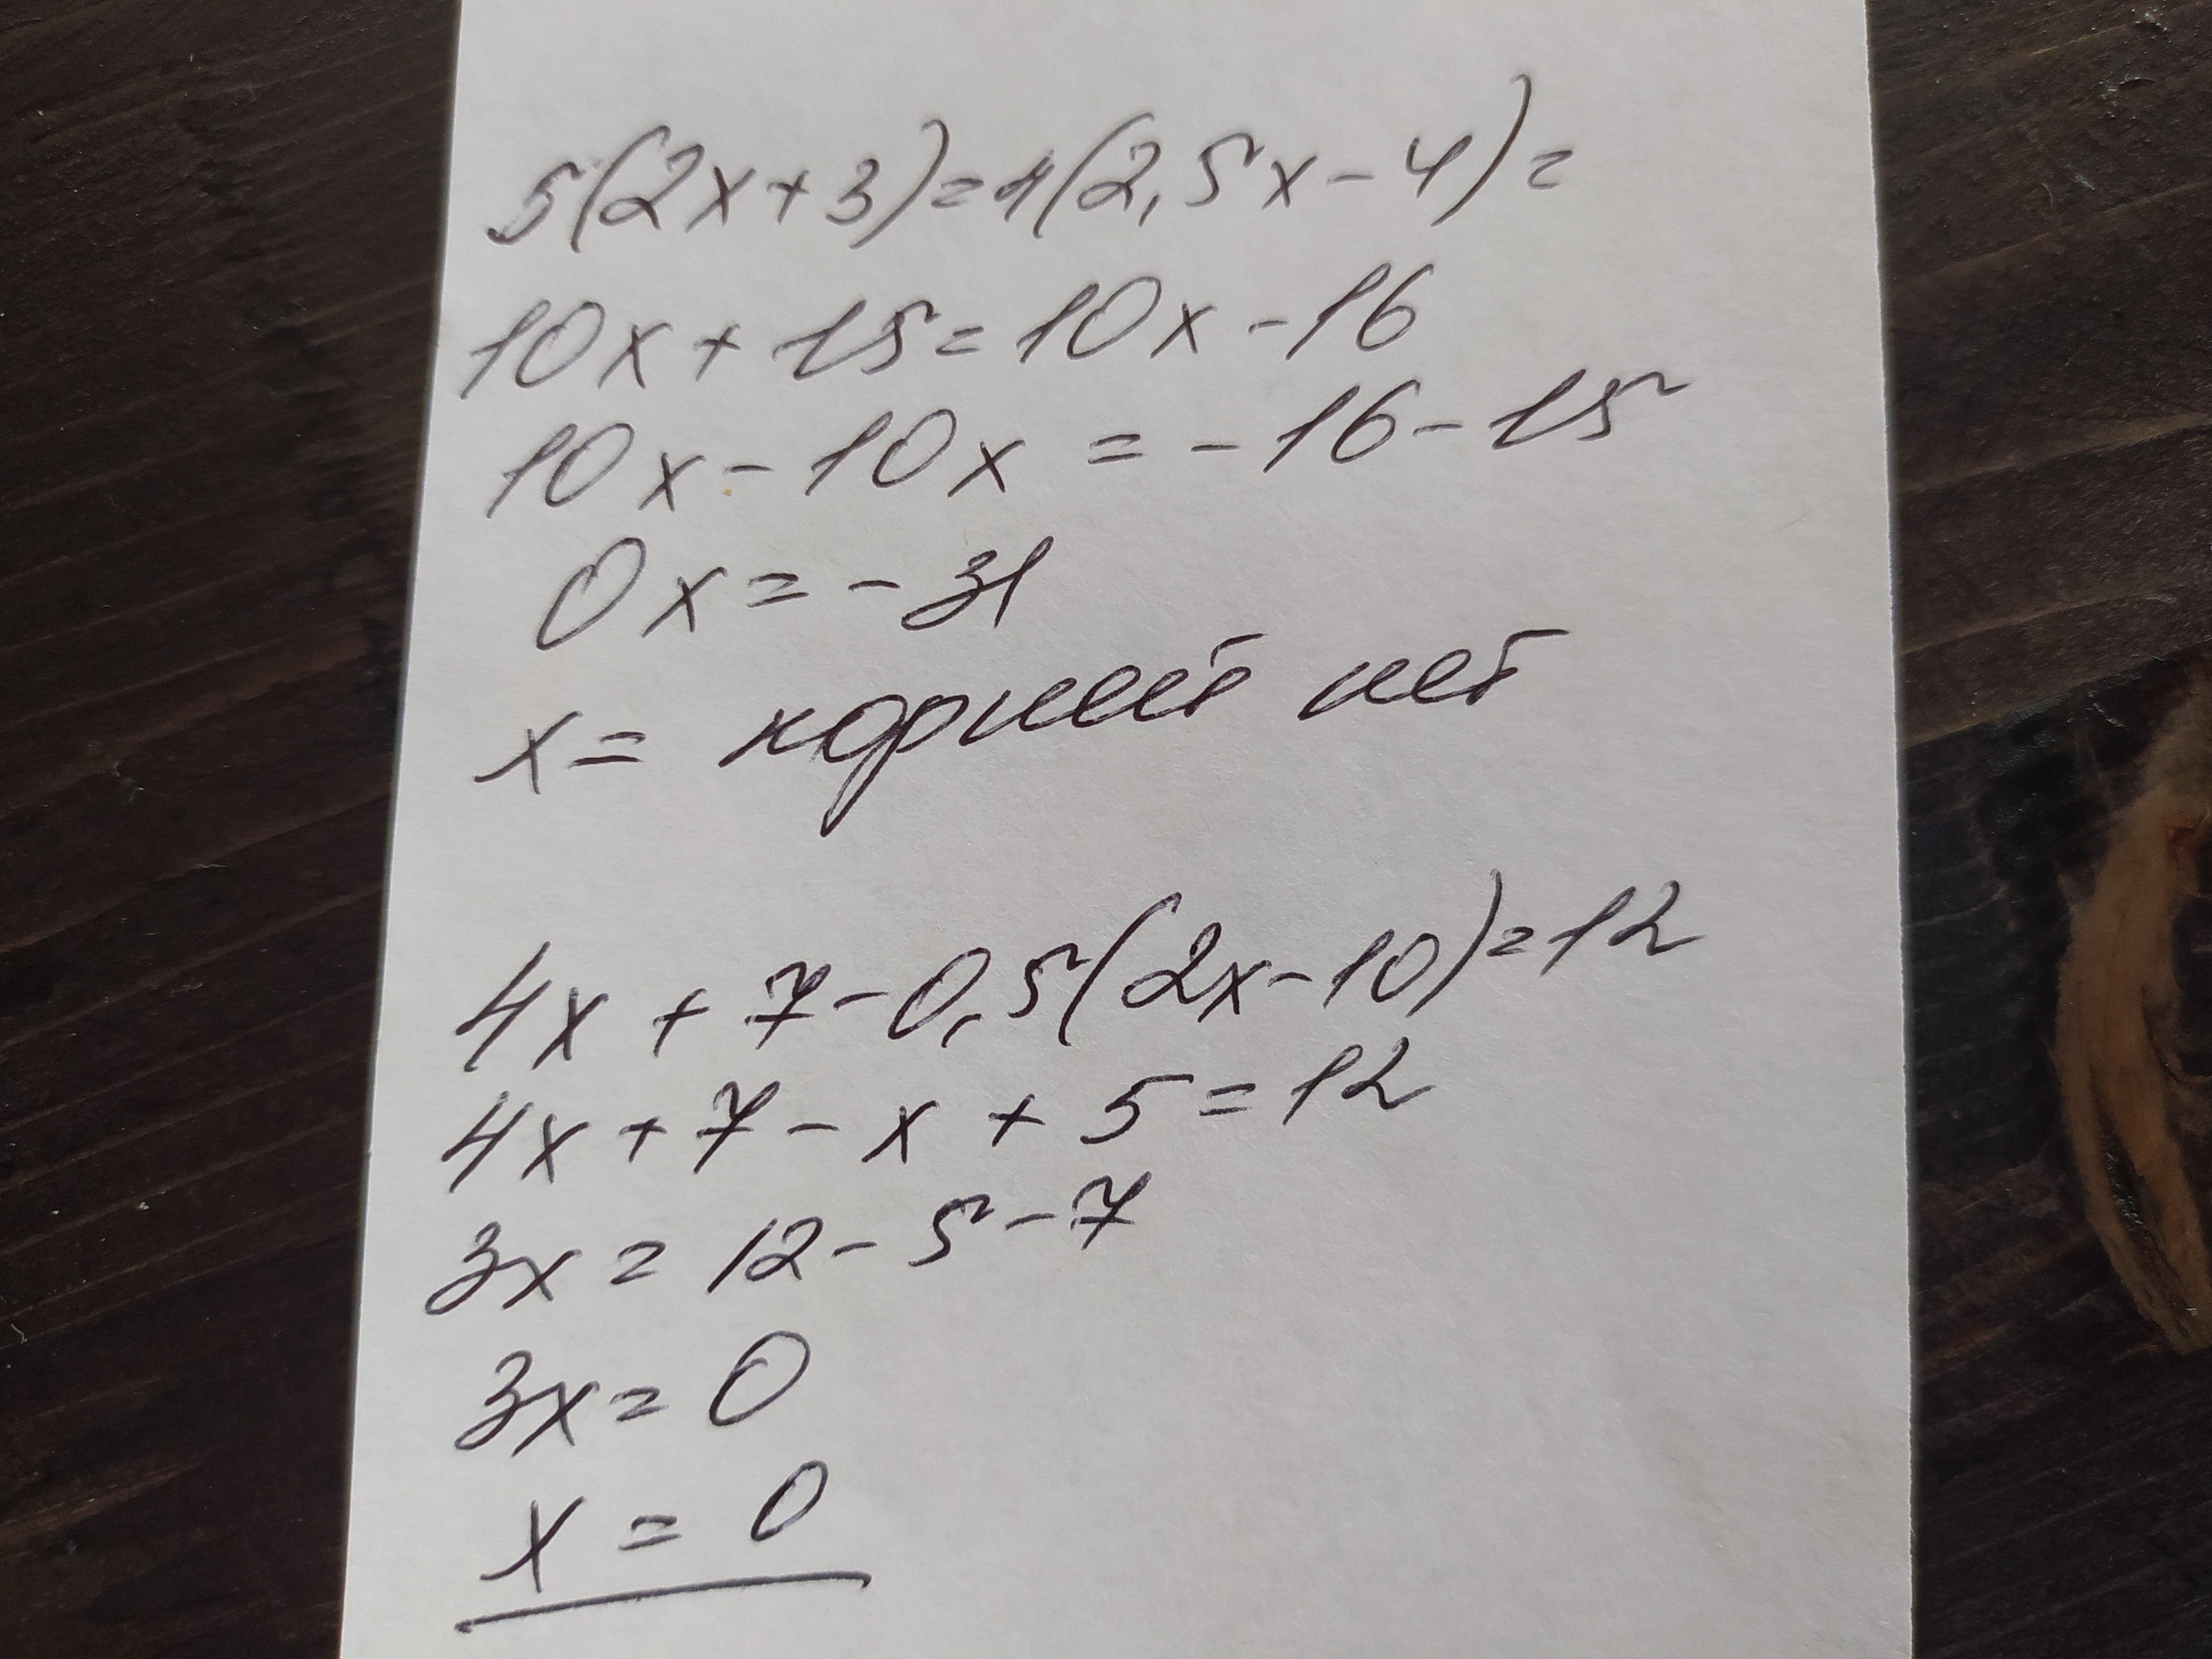 5(2x+3)=4(2,5x-4)=
10x+15=10x-16
10x-10x=-16-15
0x=-31
x= корней нет
4x+7-0,5(2x-10)=12
4x+7-x+5=12
3x=12-5-7
3x=0
x=0